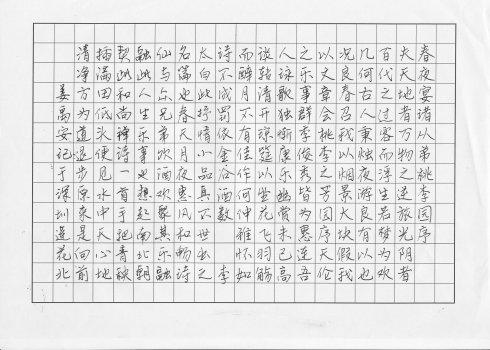 春夜宴诸从弟桃李园序
夫天地者万物之逆旅光阴者
百代之过客而浮生若梦为欢
几何古人秉烛夜游良有以也
况良春召我以烟景大块假我
以文章会桃李之芳园序天伦
之乐事群季俊秀皆为惠连吾
人咏歌独惭康乐幽赏未已高
谈转清开琼筵以坐花飞羽觞
而醉月不有佳作何伸雅怀如
诗不成罚依金谷酒数 李
太白此好情小品真不世出之
名篇也春天月夜惠风和畅诗
仙与尔兄弟欢酒欢聚其乐融
融此人生乐事也想起南北朝
契此和尚禅诗一首手把青秧
插满田低头便见水中天心地
清净方为道退步原来是向前
姜禹安记于深圳遥花北